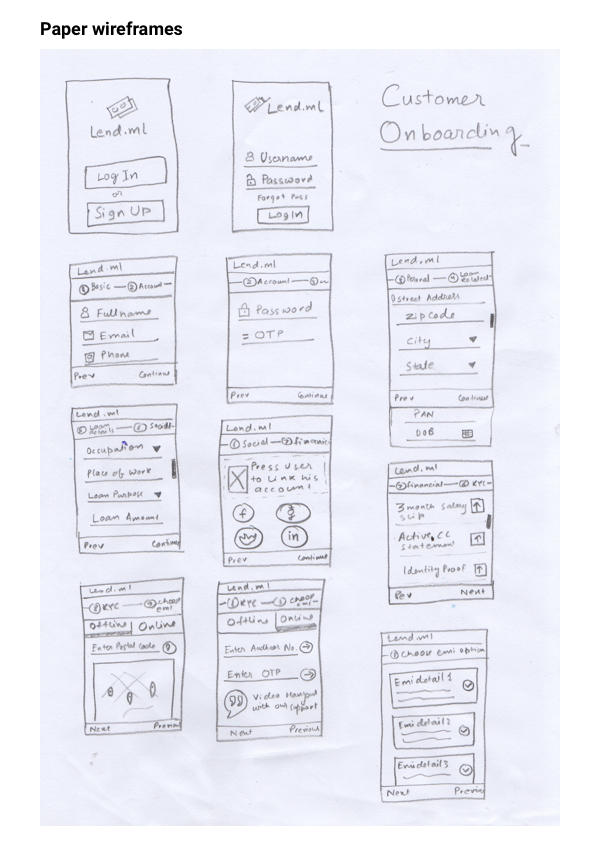 Paper wireframes
Lend.ml
Log In
or
Sign UP
Lend.ml
Username
Password
Forgot Pass
Log In
Customer
Onboarding
Lend.ml
1 Basic 2 Account
Full name
Email
Phone
Prev Continue
Lend.ml
2 Account 3
Password
OTP
Prev Continue
Lend.ml
3 Personal 4 Loan
Street Address
Zip Code
City
State
Prev Continue
PAN
DOB
Lend.ml
Loan
Details
Occupation
Place of Work
Loan Purpose
Loan Amount
Prev Continue
Lend.ml
Social financi
Press User
to Link his
account
f
g
in
Prev Continue
Lend.ml
financial KYC
3 month salary
slip
Active CC
Statement
Identity Proof
Prev Next
Lend.ml
KYC choose
emi
Offline Online
Enter Postal code
Next Previous
Lend.ml
KYC choose
emi
Offline Online
Enter Aadhar No.
Enter OTP
Video Hangout
with our support
Next Previous
Lend.ml
choose emi option
Emi detail 1
Emi detail 2
Emi detail 3
Next Previou